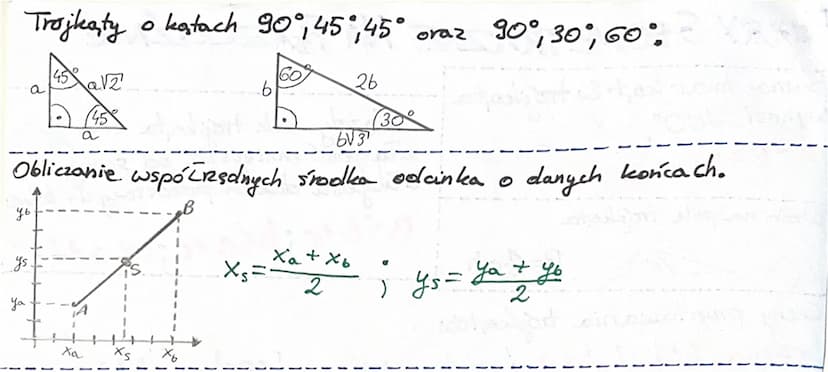 Trójkąty o kątach 90°, 45°, 45° oraz 90°, 30°, 60°.
45°
a
a√2
45°
a
60°
b
2b
30°
b√3
Obliczanie współrzędnych środka odcinka o danych końcach.
yb
B
ys
S
ya
A
xa xs xb
xs = xa + xb / 2 ; ys = ya + yb / 2